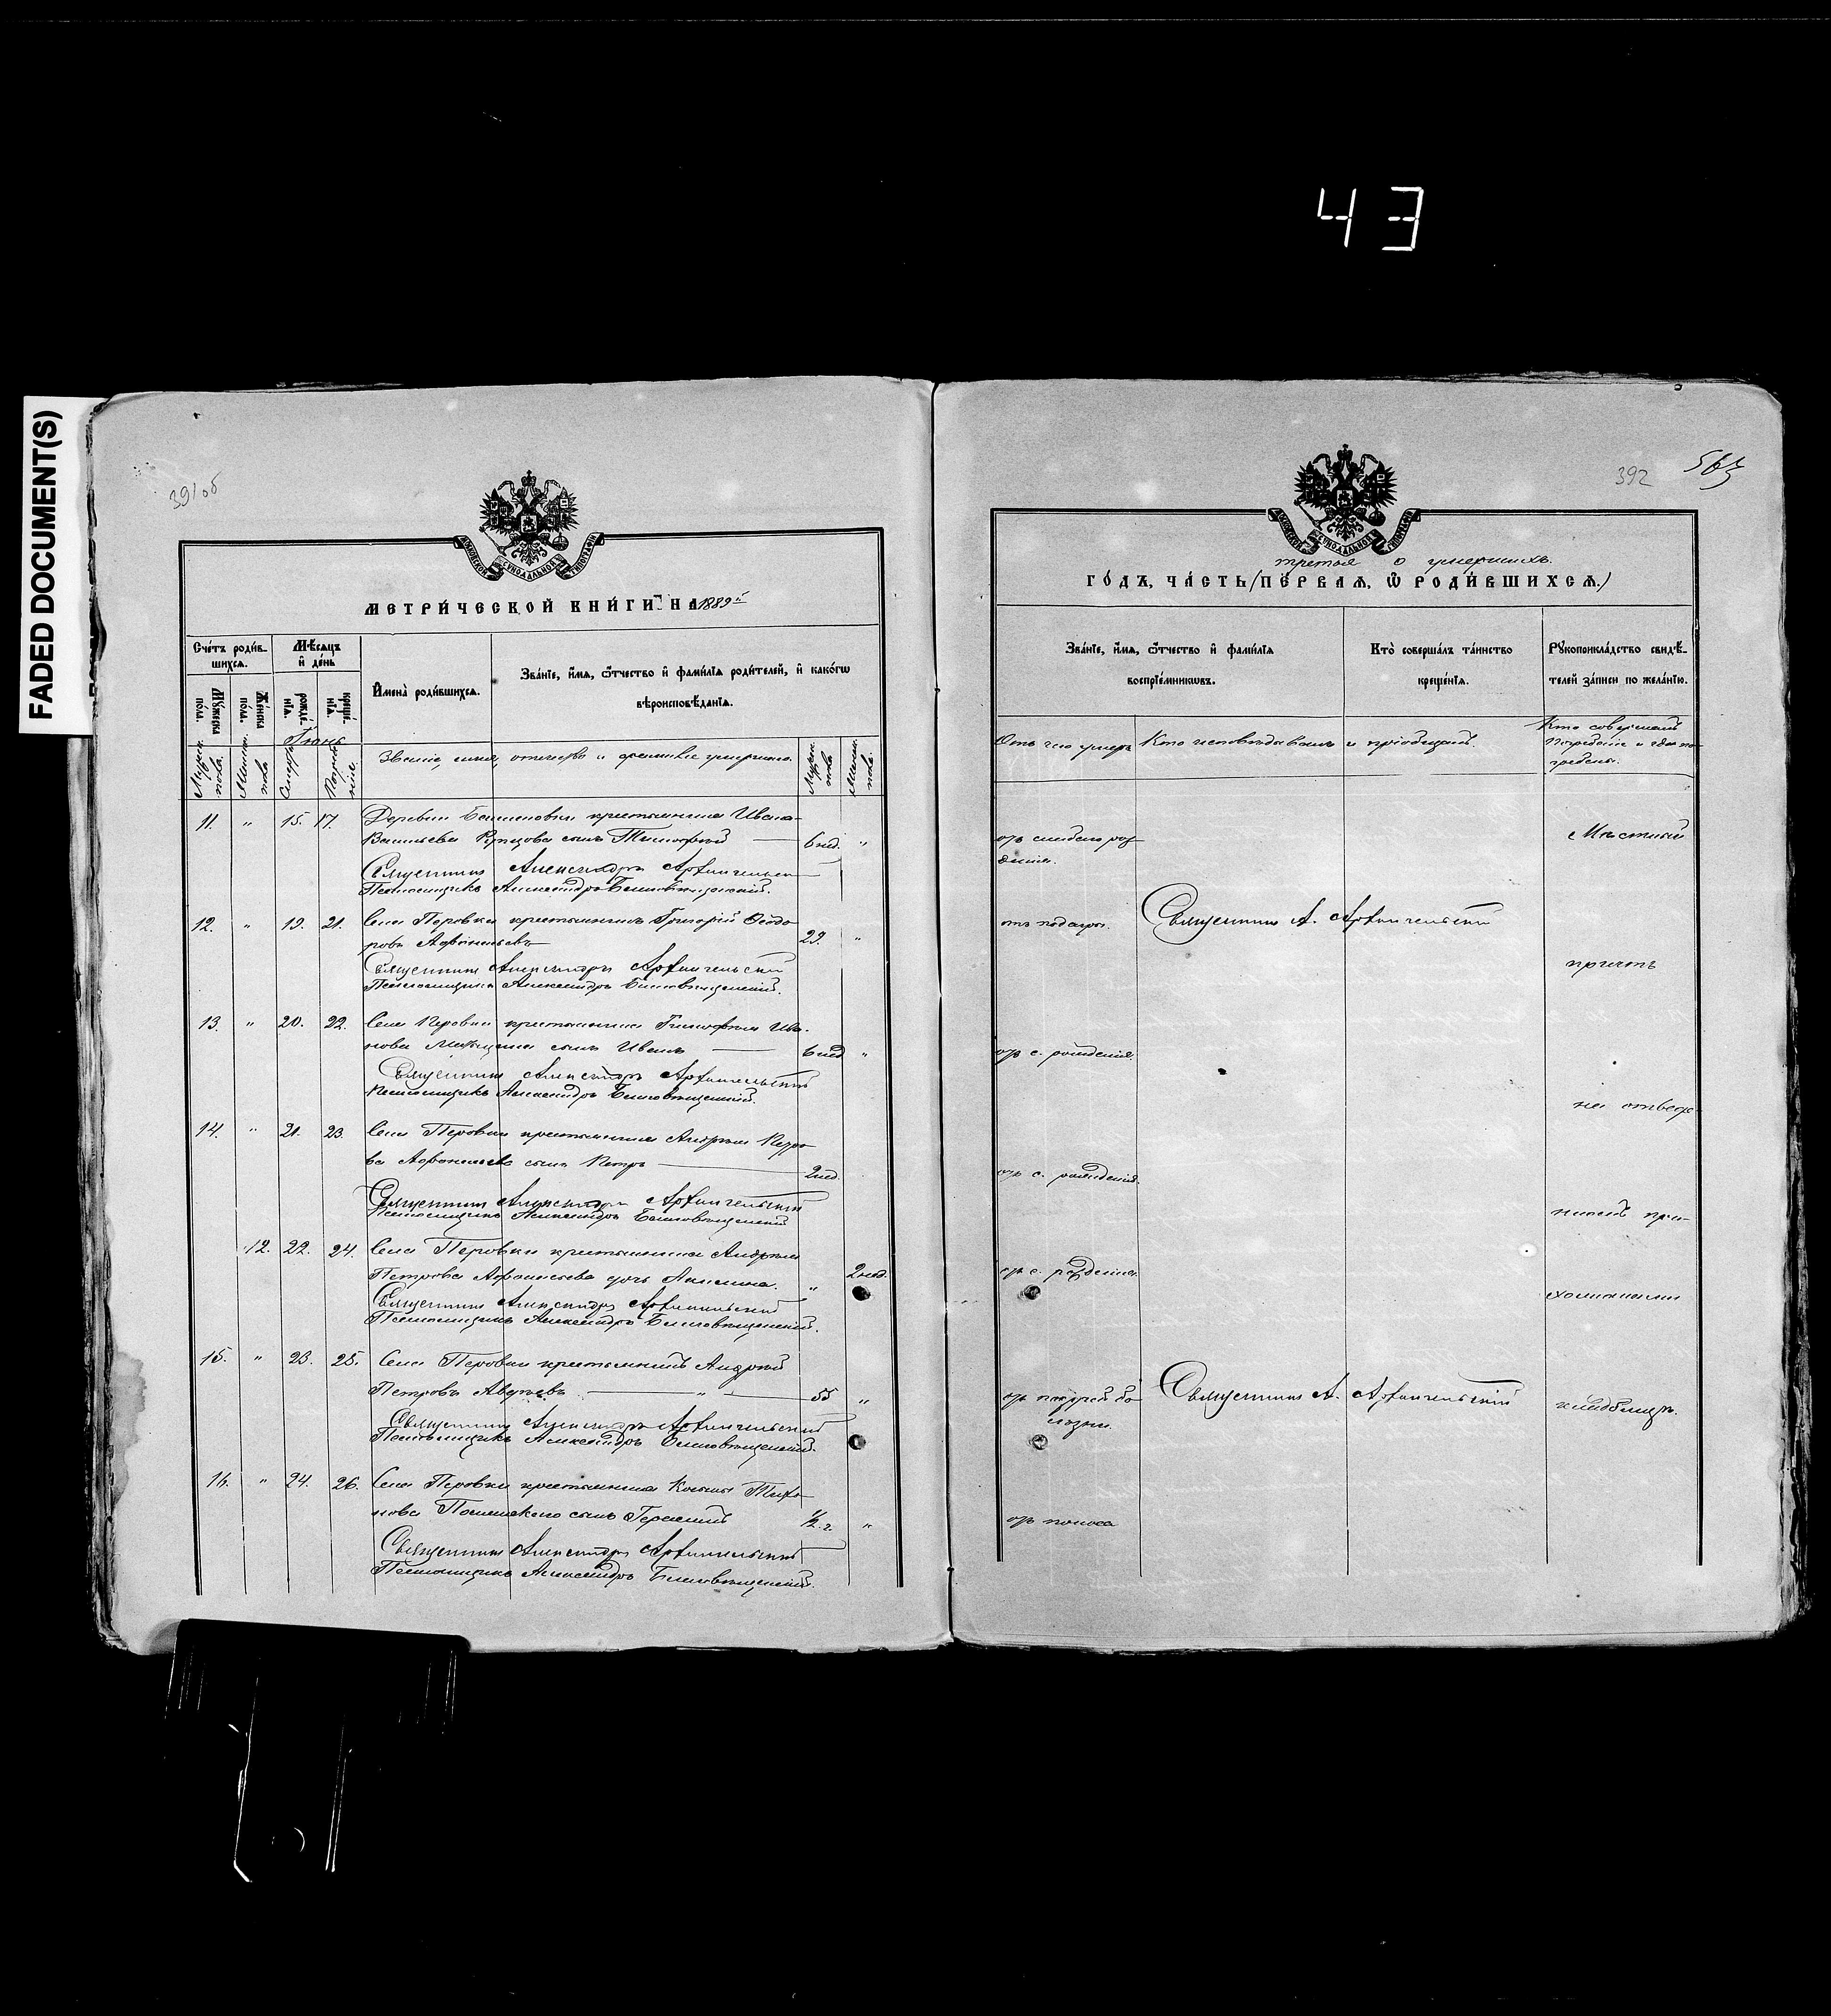 43
FADED DOCUMENT(S)
391об
МОСКОВСКОЙ СѴНОДАЛЬНОЙ ТИПОГРАФІИ
МЕТРИ́ЧЕСКОЙ КНИ́ГИ НА 1889й
Сче́тъ роди́в-
шихсѧ.
Мѣ́сѧцъ
и҆ де́нь
Мꙋжеска
пола.
Же́нска
пола.
рожде́-
нїѧ.
креще́-
нїѧ.
И҆мена̀ роди́вшихсѧ.
Зва́нїе, и҆́мѧ, ѻ҆́тчество и҆ фами́лїѧ роди́телей, и҆ како́гѡ
вѣроисповѣ́данїѧ.
Іюнь
Мужес. пола.
Женск. пола
Смерти
Погребенія.
Званіе, имя, отчество и фамилія умершаго.
Мужес. пола
Женск. пола.
11. " 15. 17. Деревни крестьянина Ивана
Васильева сынъ Тимофей — 6 нед. "
Священникъ Александръ Архангельскій
Псаломщикъ Александръ Благовѣщенскій.
12. " 19. 21. Села Перовки крестьянинъ Григорій Ѳедо
ровъ Афонасьевъ — 29. "
Священникъ Александръ Архангельскій
Псаломщикъ Александръ Благовѣщенскій.
13. " 20. 22. Села Перовки крестьянина Тимофея Ива-
нова сынъ Иванъ — 6 нед "
Священникъ Александръ Архангельскій
Псаломщикъ Александръ Благовѣщенскій.
14. " 21. 23. Села Перовки крестьянина Андрея Петро
ва Афонасьева сынъ Петръ — 2 нед.
Священникъ Александръ Архангельскій
Псаломщикъ Александръ Благовѣщенскій
12. 22. 24. Села Перовки крестьянина Андрея
Петрова Афонасьева дочь Акилина. " 2 нед.
Священникъ Александръ Архангельскій
Псаломщикъ Александръ Благовѣщенскій.
15. " 23. 25. Села Перовки крестьянинъ Андрей
Петровъ — " — 55 "
Священникъ Александръ Архангельскій
Псаломщикъ Александръ Благовѣщенскій.
16. " 24. 26. Села Перовки крестьянина Косьмы Тихо-
нова сынъ Герасимъ ½ г. "
Священникъ Александръ Архангельскій
Псаломщикъ Александръ Благовѣщенскій.
392
563
МОСКОВСКОЙ СѴНОДАЛЬНОЙ ТИПОГРАФІИ
третья о умершихъ.
ГО́ДЪ, ЧА́СТЬ (ПЕ́РВАѦ, Ѡ҆ РОДИ́ВШИХСѦ.)
Зва́нїе, и҆́мѧ, ѻ҆́тчество и҆ фами́лїѧ
воспрїе́мникѡвъ.
Кто̀ соверша́лъ та́инство
креще́нїѧ.
Рꙋкоприкла́дство свидѣ́-
телей за́писи по жела́нїю.
Отъ чего умеръ
Кто исповѣдавалъ и пріобщалъ.
Кто совершалъ
погребеніе и гдѣ по-
гребены.
отъ слабаго рож
денія.
Мѣстный
отъ
Священникъ А. Архангельскій
причтъ
отъ с. рожденія.
на отвед-
отъ с. рожденія.
номъ при-
отъ с. рожденія.
ходскомъ
Священникъ А. Архангельскій
кладбищѣ.
отъ поноса